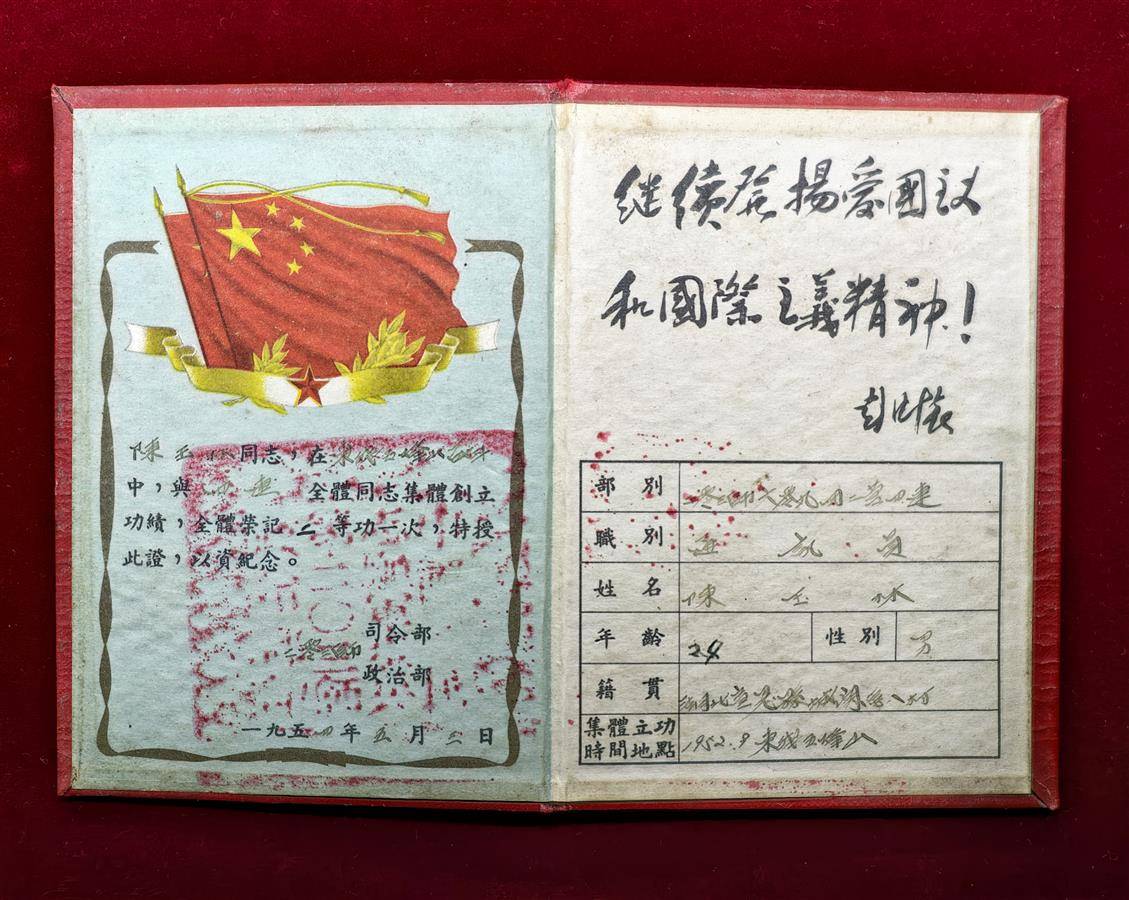 陳玉林同志，在東线五峰山战斗
中，與四連 全體同志集體創立
功績，全體榮記二等功一次，特授
此證，以資紀念。
司令部
二零三师
政治部
一九五四年五月三日
继續发揚爱國主义
和國際主義精神！
彭德懷
部別 二零三师六零九团二营四連
職別
姓名 陳玉林
年齡 24 性別 男
籍貫
集體立功時間地點 1952.9 東线五峰山